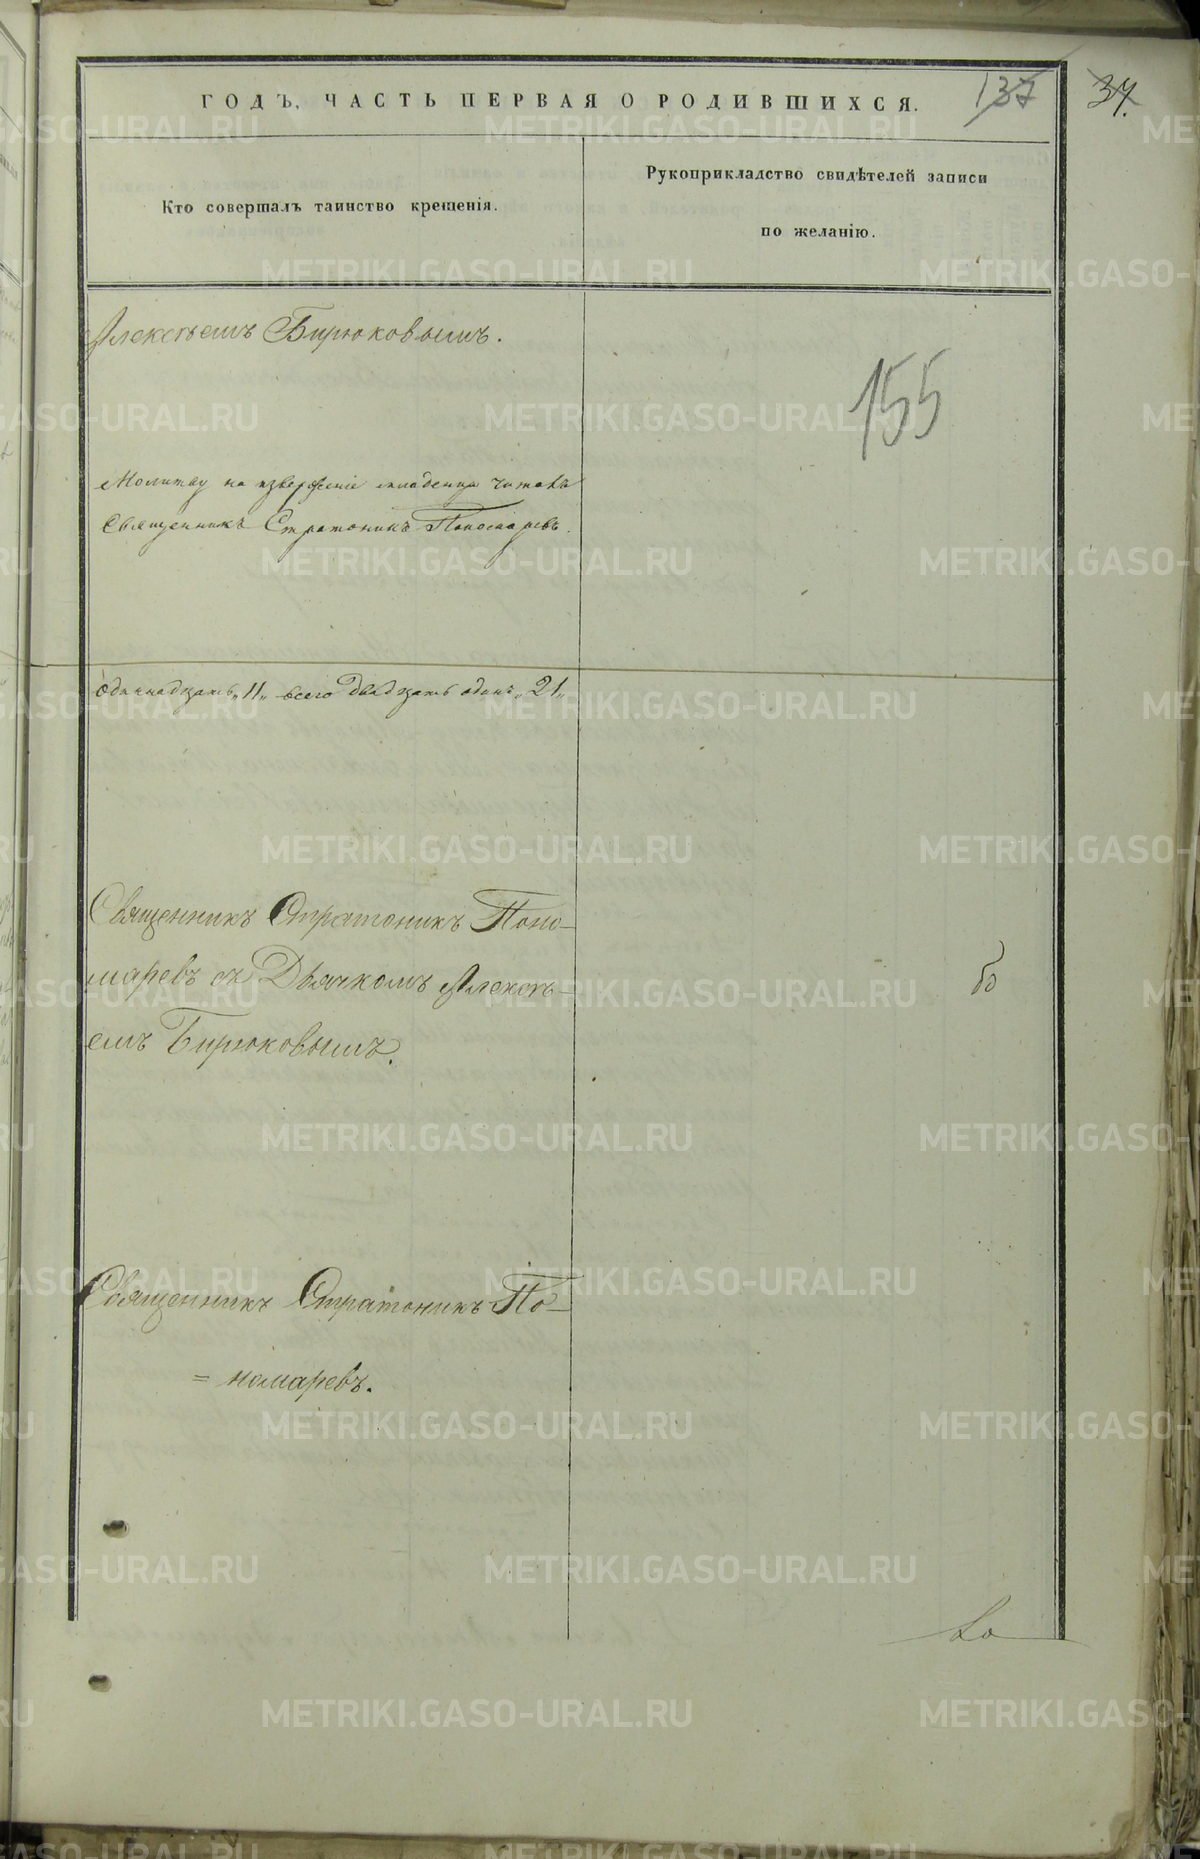 ГОДЪ, ЧАСТЬ ПЕРВАЯ О РОДИВШИХСЯ.
137
37.
Кто совершалъ таинство крещенія.
Рукоприкладство свидѣтелей записи
по желанію.
Алексѣемъ Бирюковымъ.
155
Молитву на извержение младенца читалъ
Священникъ Стратоникъ Пономаревъ.
одиннадцать „11„ всего двадцать одинъ „21„
Священникъ Стратоникъ Поно-
маревъ съ Дьячкомъ Алексѣ-
емъ Бирюковымъ.
бо
Священникъ Стратоникъ По-
= номаревъ.
METRIKI.GASO-URAL.RU